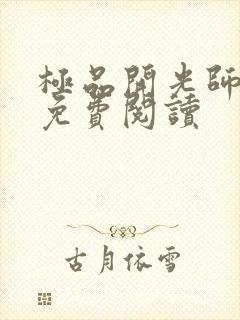 極品開光師
免費閱讀
古月依雪